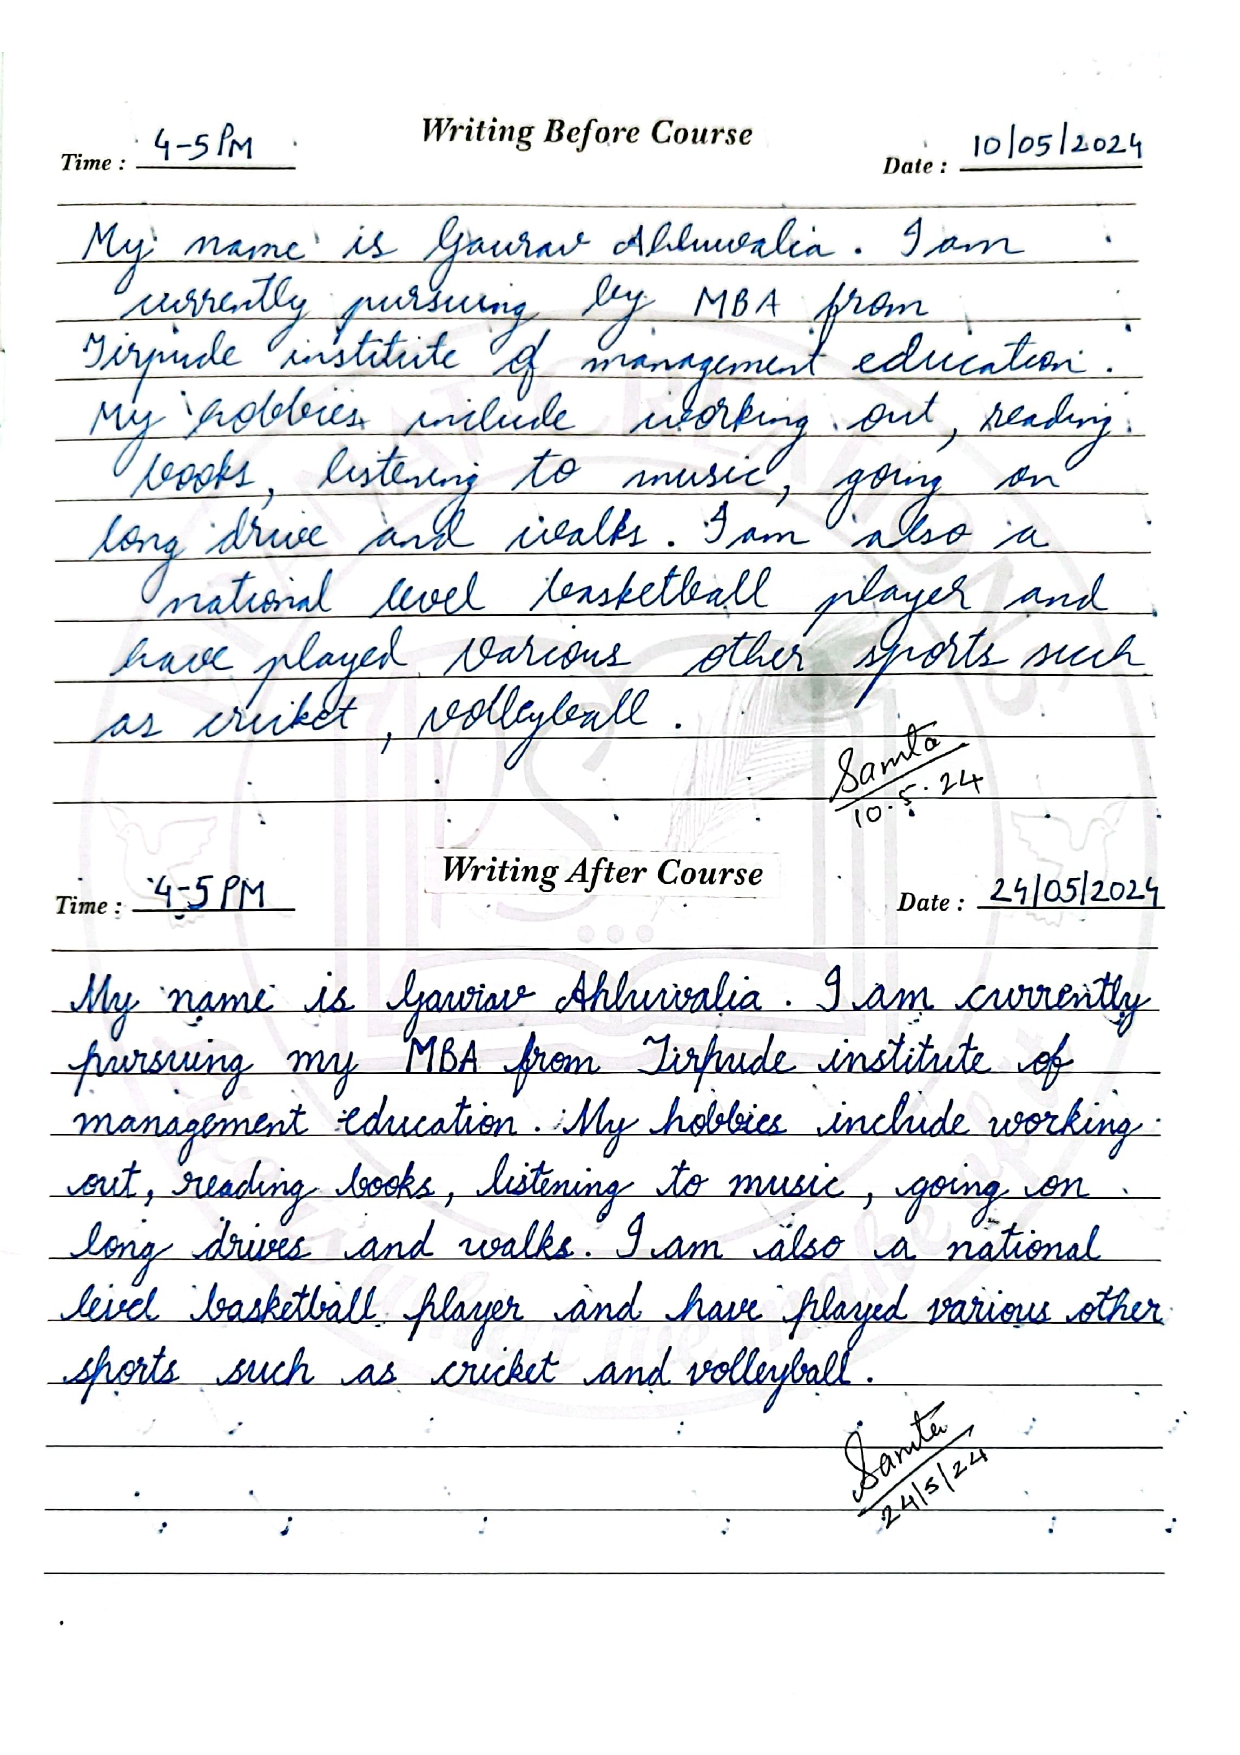 Writing Before Course
Time : 4-5 PM
Date : 10/05/2024
My name is Gaurav Ahluwalia. I am
currently pursuing by MBA from
Tirpude institute of management education.
My hobbies include working out, reading
books, listening to music, going on
long drive and walks. I am also a
national level basketball player and
have played various other sports such
as cricket, volleyball.
Samta
10.5.24
Writing After Course
Time : 4-5 PM
Date : 24/05/2024
My name is Gaurav Ahluwalia. I am currently
pursuing my MBA from Tirpude institute of
management education. My hobbies include working
out, reading books, listening to music, going on
long drives and walks. I am also a national
level basketball player and have played various other
sports such as cricket and volleyball.
Samta
24/5/24